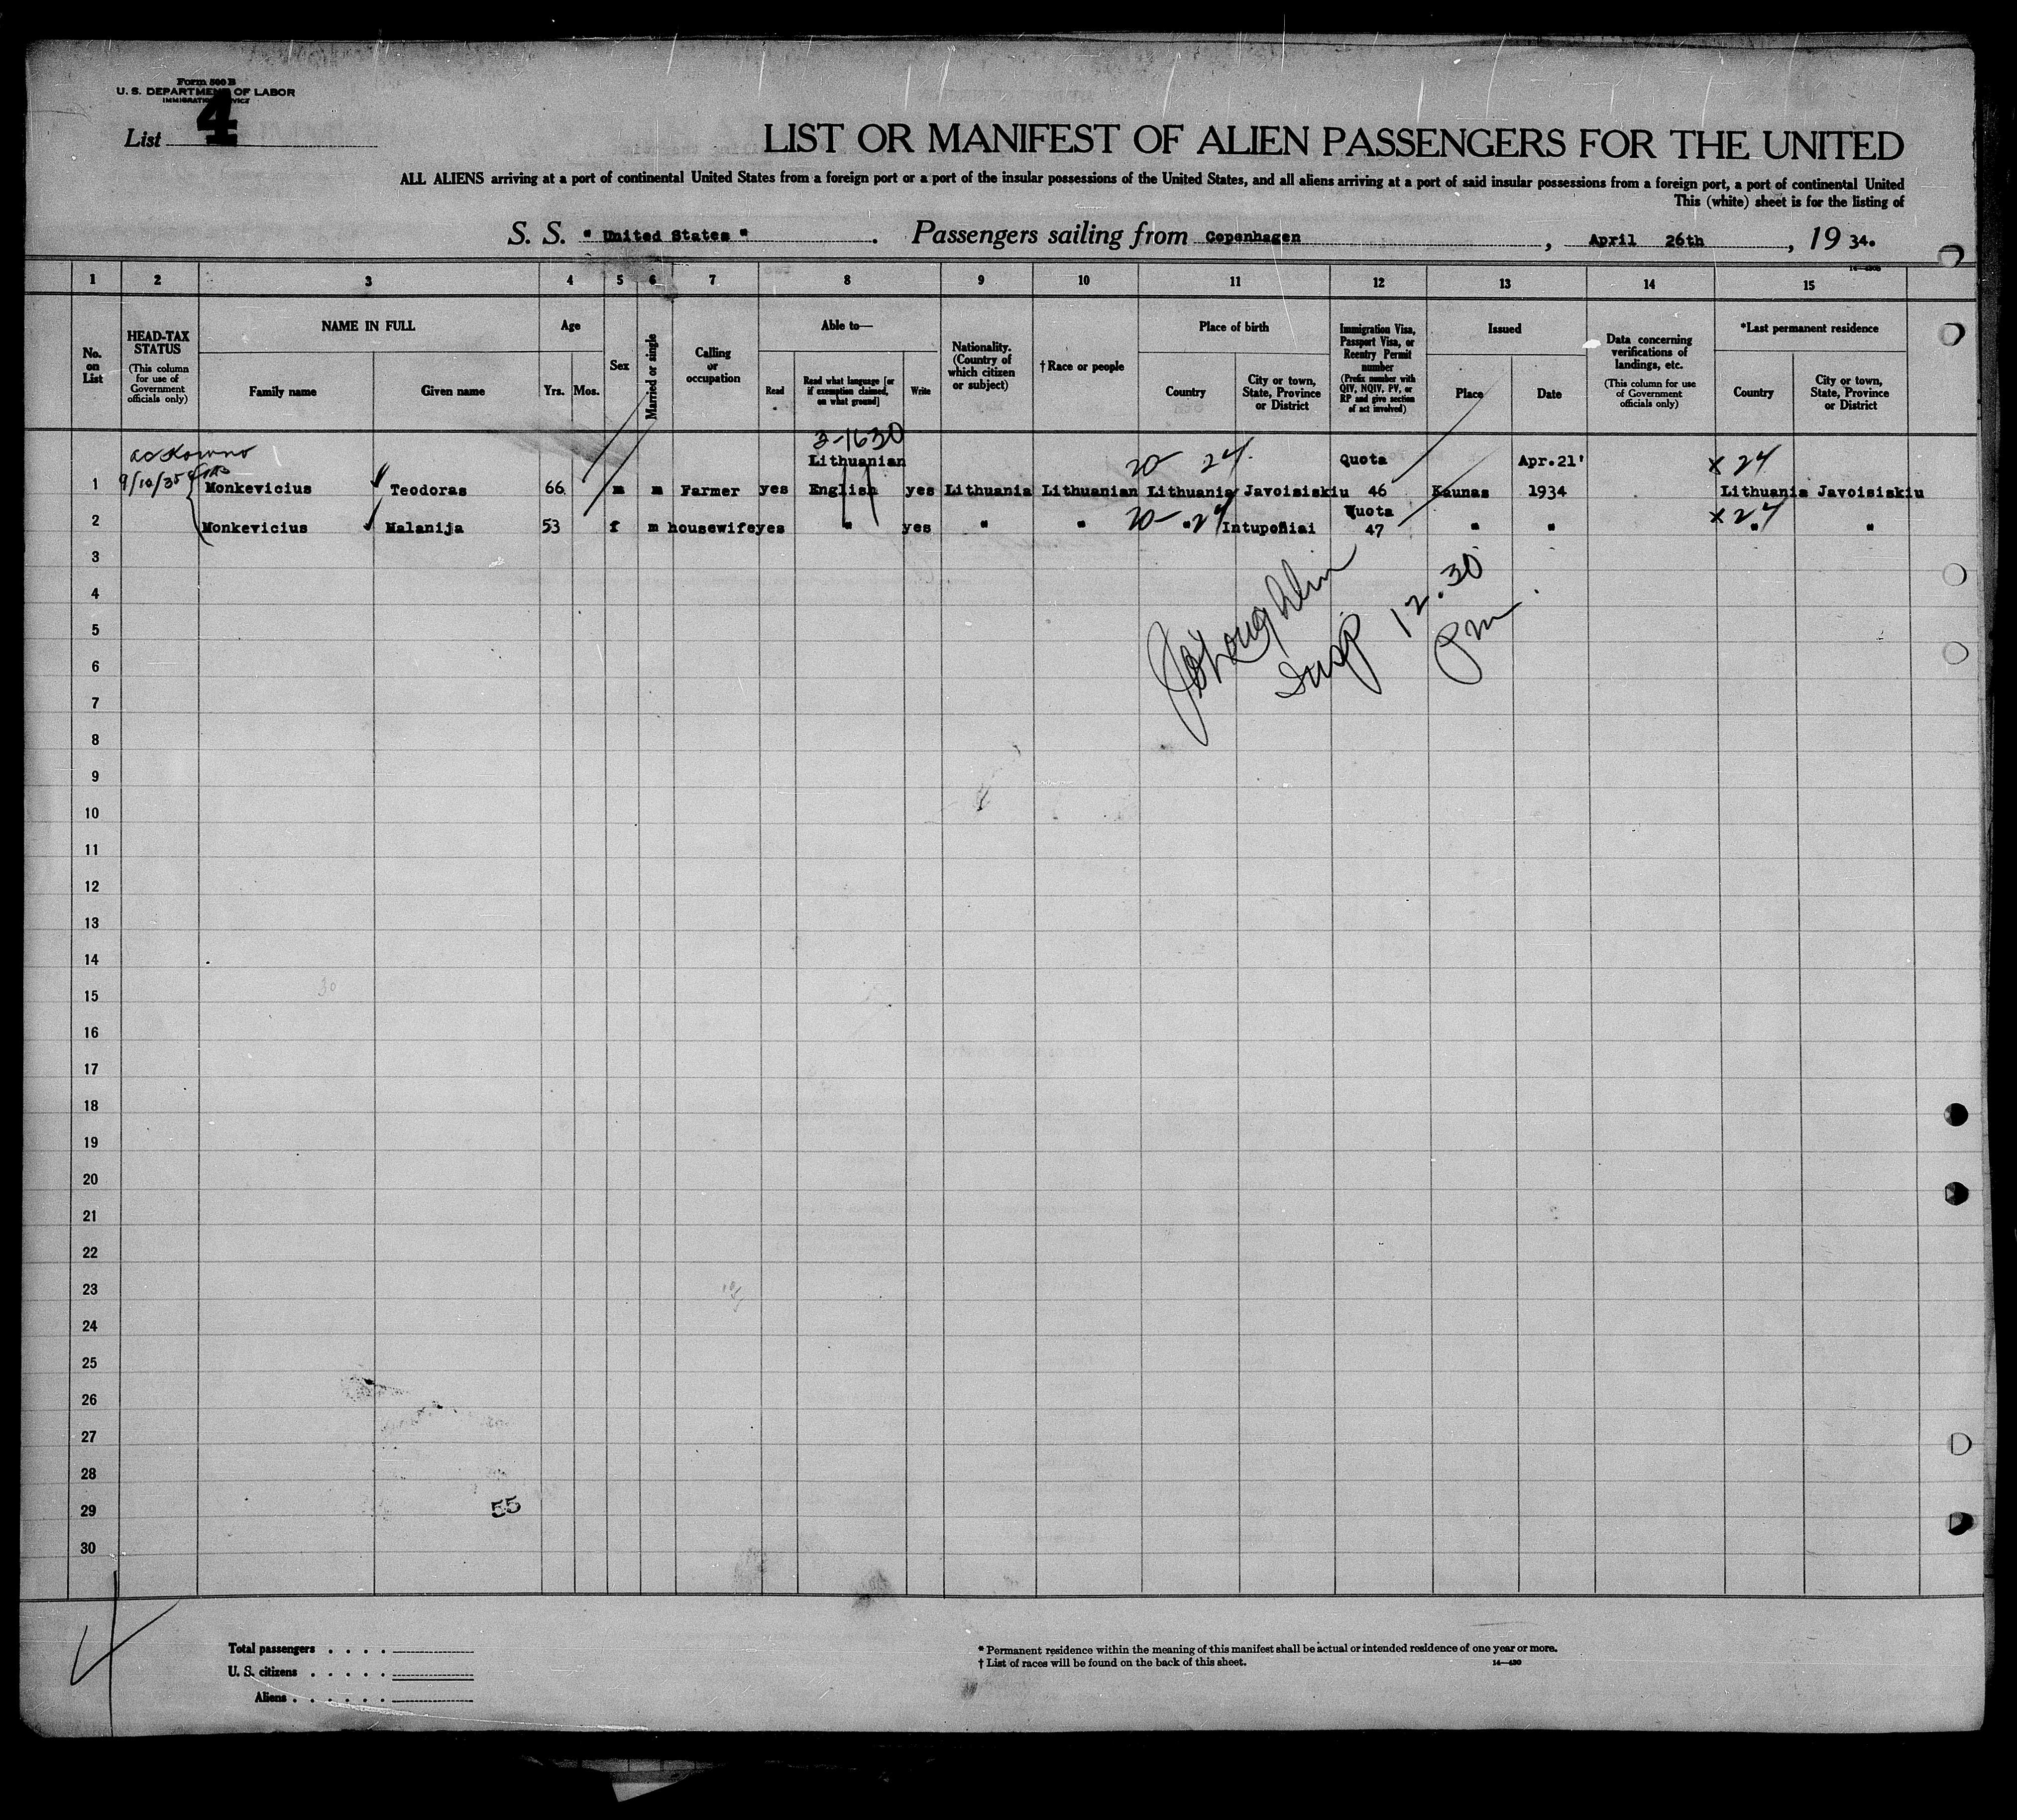 Form 500 B
U. S. DEPARTMENT OF LABOR
IMMIGRATION SERVICE
List 4
LIST OR MANIFEST OF ALIEN PASSENGERS FOR THE UNITED
ALL ALIENS arriving at a port of continental United States from a foreign port or a port of the insular possessions of the United States, and all aliens arriving at a port of said insular possessions from a foreign port, a port of continental United
This (white) sheet is for the listing of
S. S. " United States " . Passengers sailing from Copenhagen , April 26th , 19 34.
1 2 3 4 5 6 7 8 9 10 11 12 13 14 15
No. on List
HEAD-TAX STATUS
(This column for use of Government officials only)
NAME IN FULL
Family name
Given name
Age
Yrs. Mos.
Sex
Married or single
Calling or occupation
Able to—
Read
Read what language [or if exemption claimed, on what ground]
Write
Nationality. (Country of which citizen or subject)
† Race or people
Place of birth
Country
City or town, State, Province or District
Immigration Visa, Passport Visa, or Reentry Permit number
(Prefix number with QIV, NQIV, PV, or RP and give section of act involved)
Issued
Place
Date
Data concerning verifications of landings, etc.
(This column for use of Government officials only)
*Last permanent residence
Country
City or town, State, Province or District
3-1630
Lithuanian 20- 24 Quota Apr.21' x 24
9/10/35
1 Monkevicius Teodoras 66 m m Farmer yes English yes Lithuania Lithuanian Lithuania Javoisiskiu 46 Kaunas 1934 Lithuania Javoisiskiu
Quota
2 Monkevicius Malanija 53 f m housewife yes " yes " " 20- " 24 Intuponiai 47 " " x 24 " "
3
4
12.30
5
Insp Pm
6
7
8
9
10
11
12
13
14
15
30
16
17
18
19
20
21
22
23
24
25
26
27
28
29 55
30
Total passengers . . . .
U. S. citizens . . . . .
Aliens . . . . . .
* Permanent residence within the meaning of this manifest shall be actual or intended residence of one year or more.
† List of races will be found on the back of this sheet.
14—430